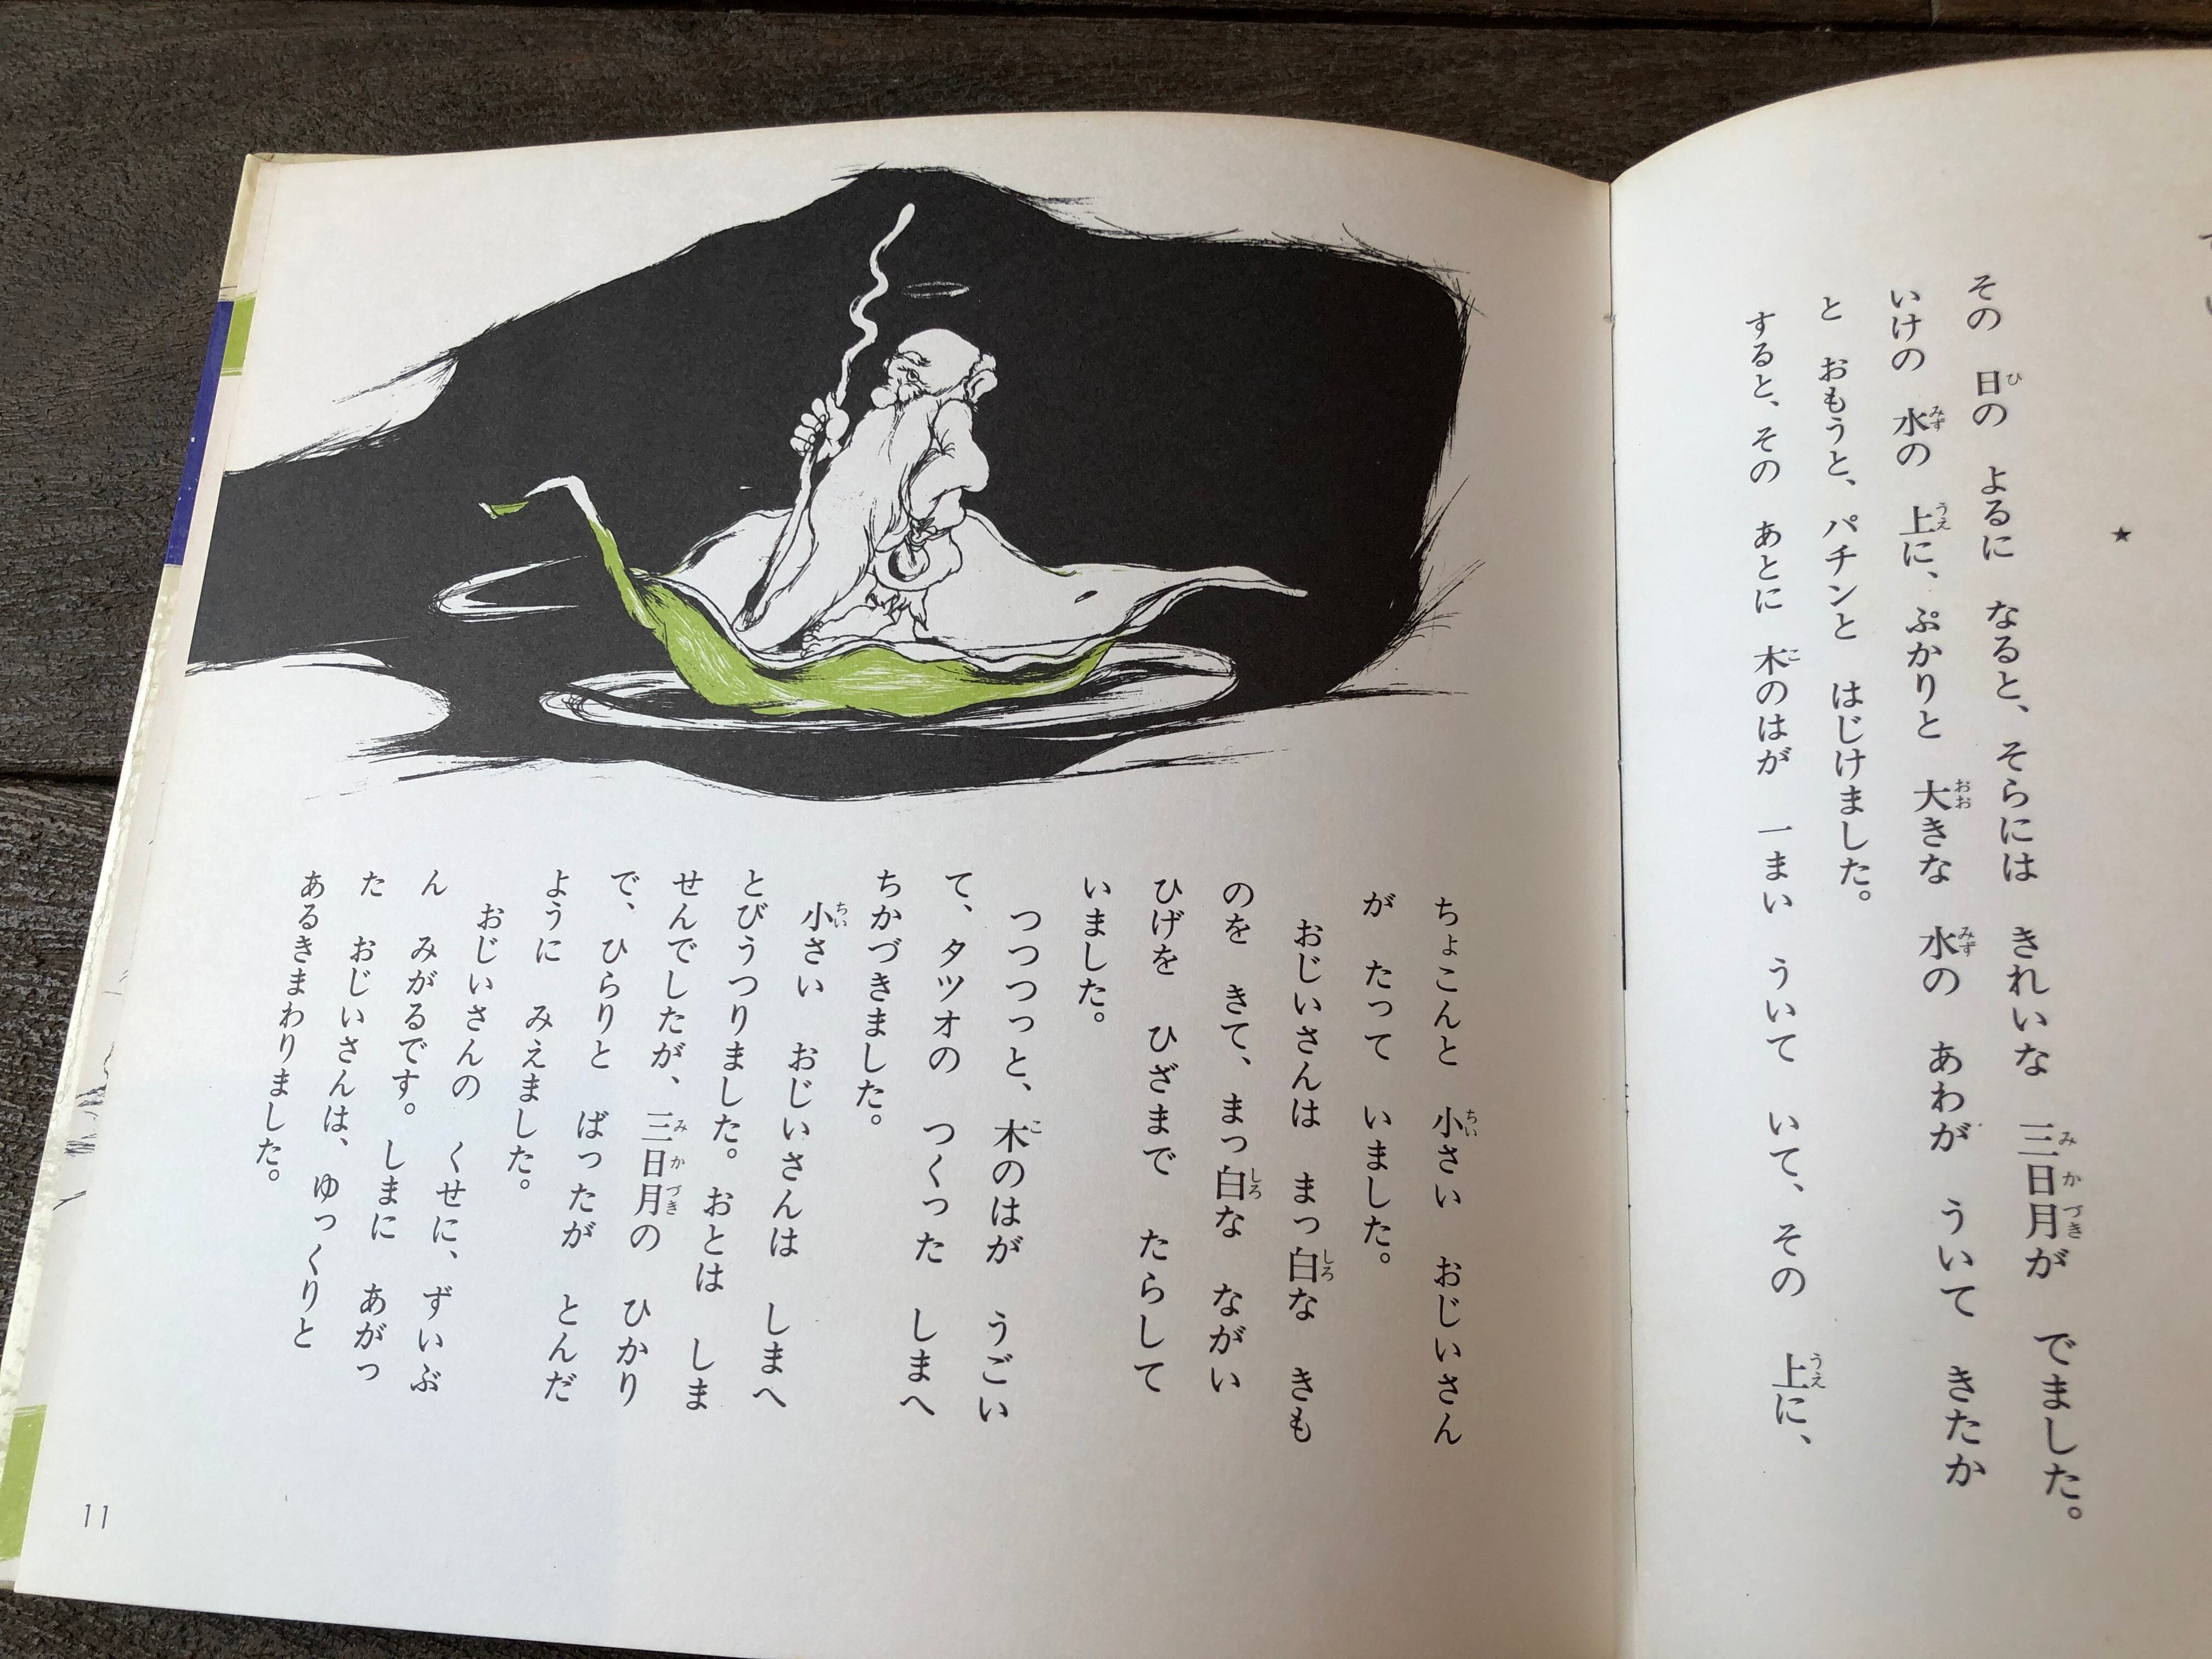 ★
その 日の よるに なると、そらには きれいな 三日月が でました。
いけの 水の 上に、ぷかりと 大きな 水の あわが ういて きたか
と おもうと、パチンと はじけました。
すると、その あとに 木のはが 一まい ういて いて、その 上に、
ちょこんと 小さい おじいさん
が たって いました。
おじいさんは まっ白な きも
のを きて、まっ白な ながい
ひげを ひざまで たらして
いました。
つつつつっと、木のはが うごい
て、タツオの つくった しまへ
ちかづきました。
小さい おじいさんは しまへ
とびうつりました。おとは しま
せんでしたが、三日月の ひかり
で、ひらりと ばったが とんだ
ように みえました。
おじいさんの くせに、ずいぶ
ん みがるです。しまに あがっ
た おじいさんは、ゆっくりと
あるきまわりました。
11